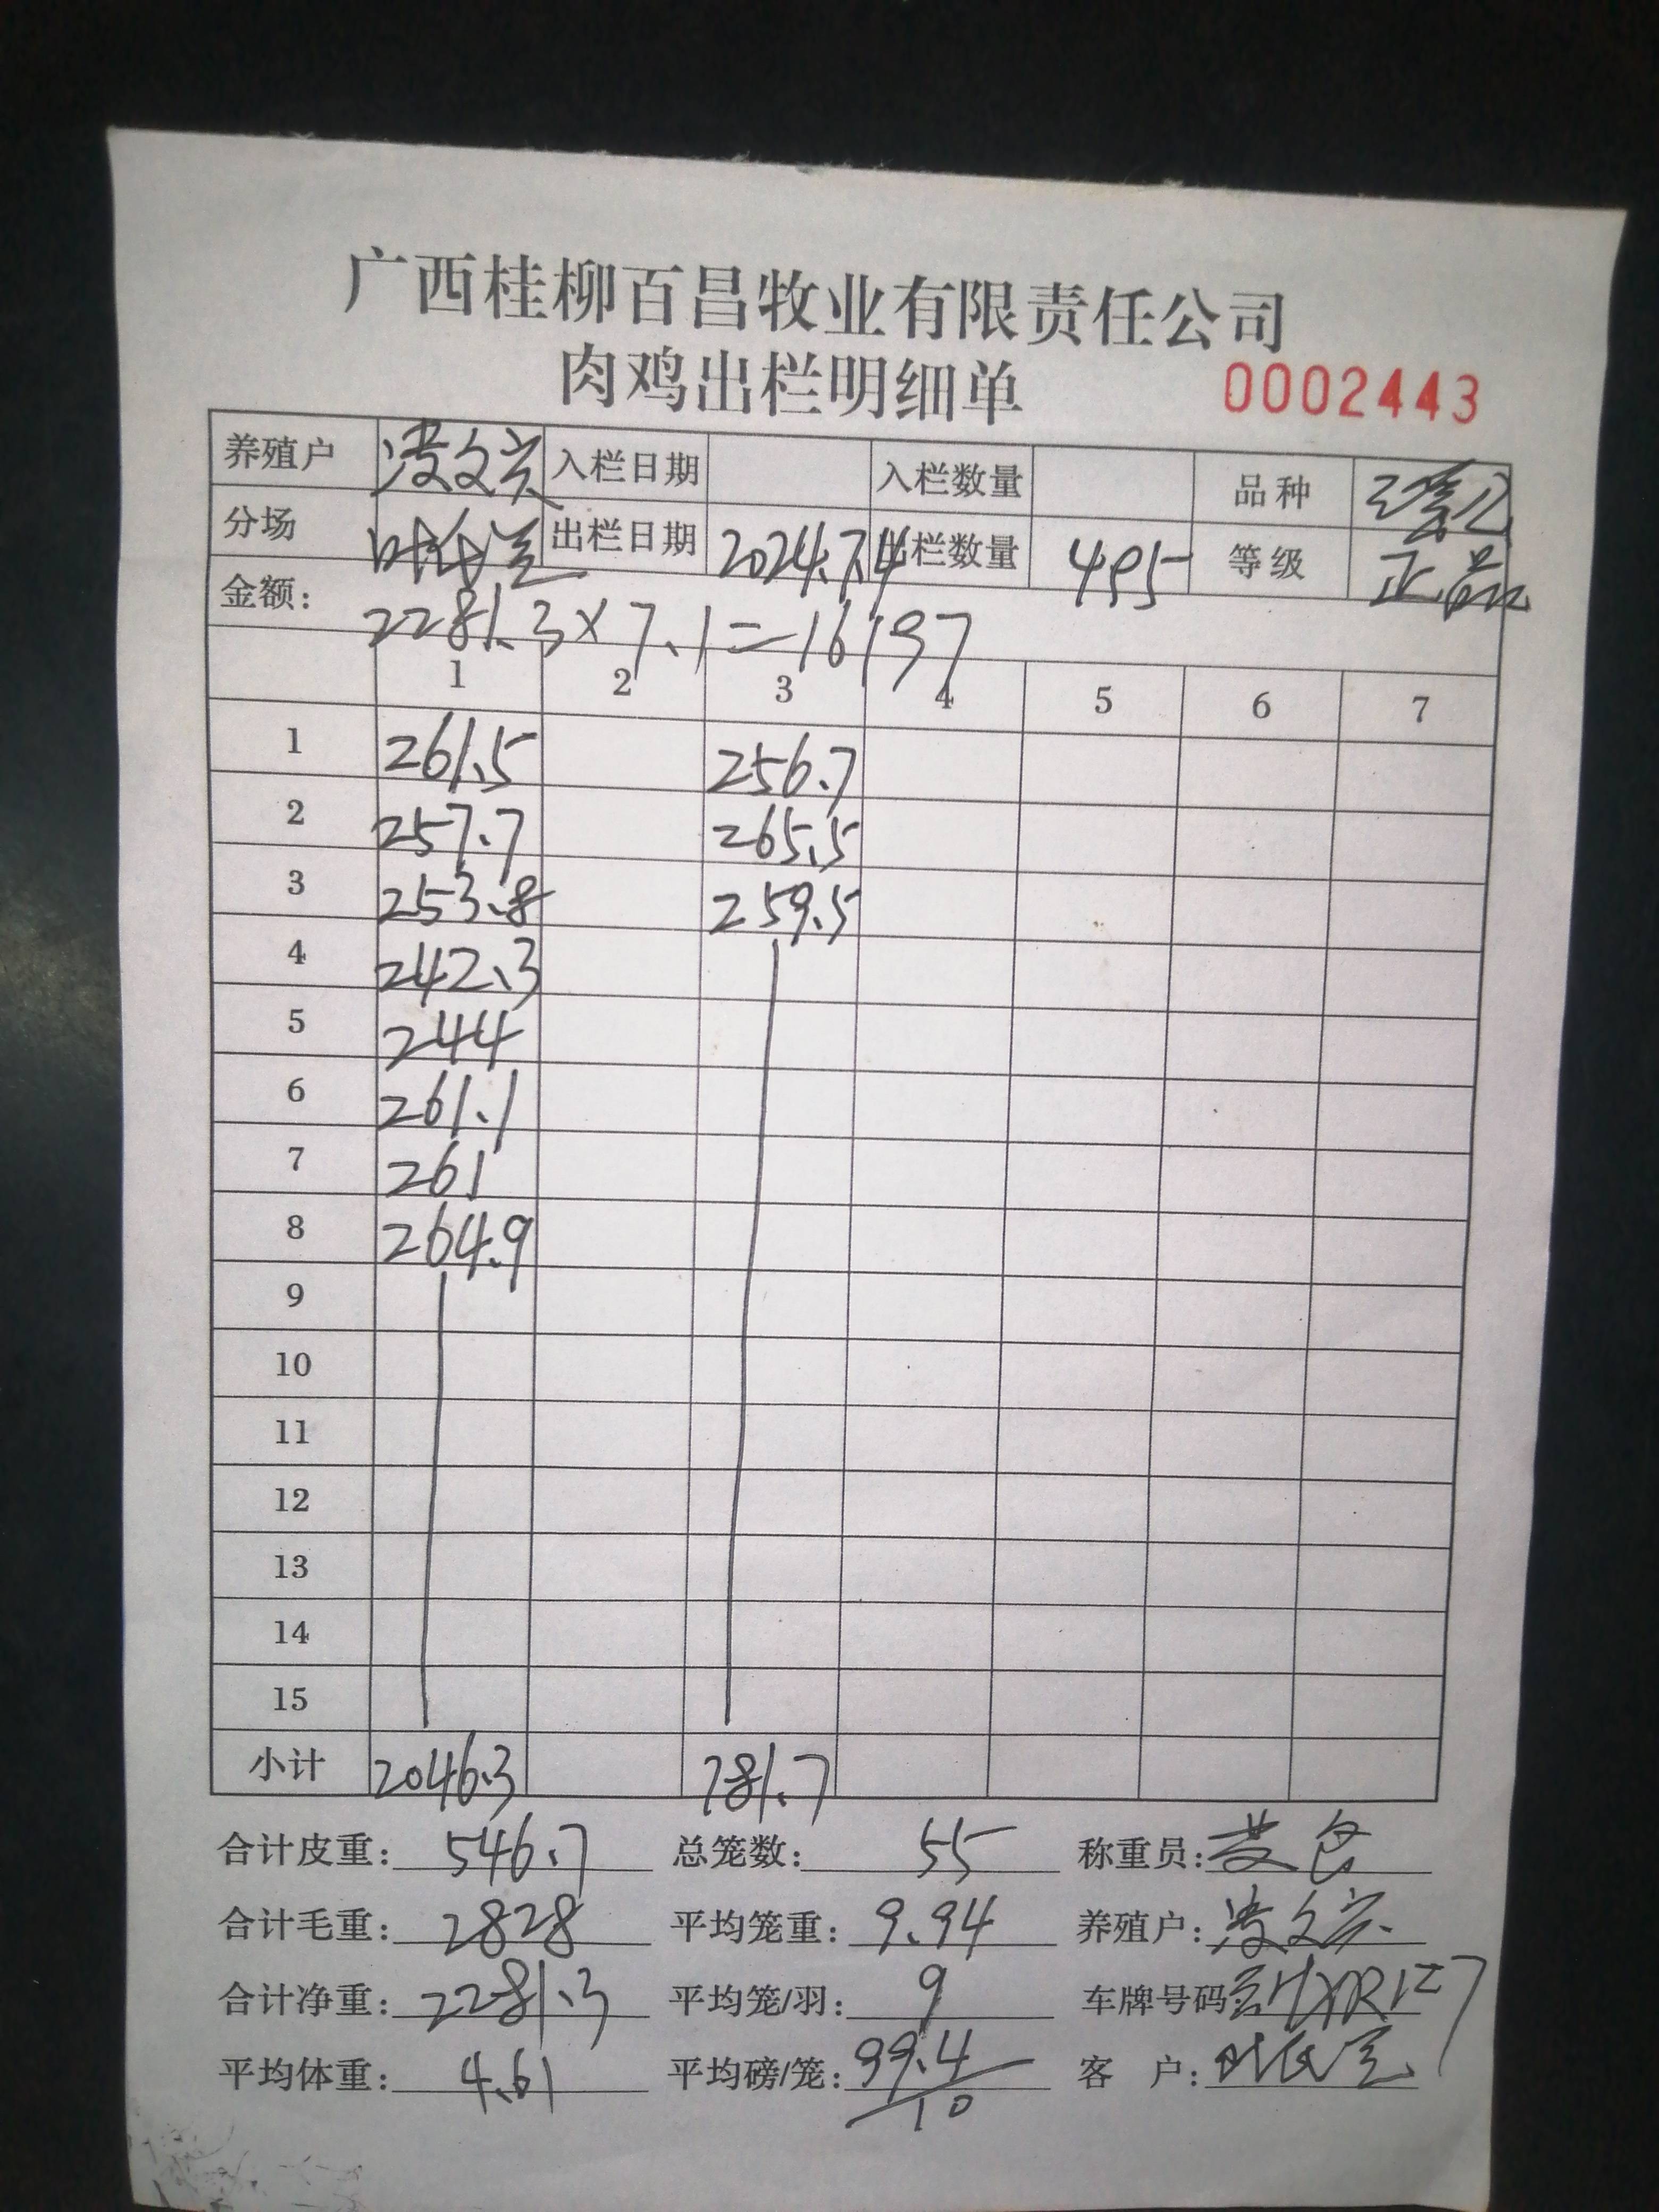 广西桂柳百昌牧业有限责任公司
肉鸡出栏明细单 0002443
养殖户 凌文宗 入栏日期 入栏数量 品种
分场 出栏日期 2024.7.4 出栏数量 495 等级 正品
金额: 2281.3×7.1=16197
1 2 3 4 5 6 7
1 261.5 256.7
2 257.7 265.5
3 253.8 259.5
4 242.3
5 244
6 261.1
7 261
8 264.9
9
10
11
12
13
14
15
小计 2046.3 781.7
合计皮重: 546.7 总笼数: 55 称重员:
合计毛重: 2828 平均笼重: 9.94 养殖户: 凌文宗
合计净重: 2281.3 平均笼/羽: 9 车牌号码:
平均体重: 4.61 平均磅/笼: 99.4/10 客 户: